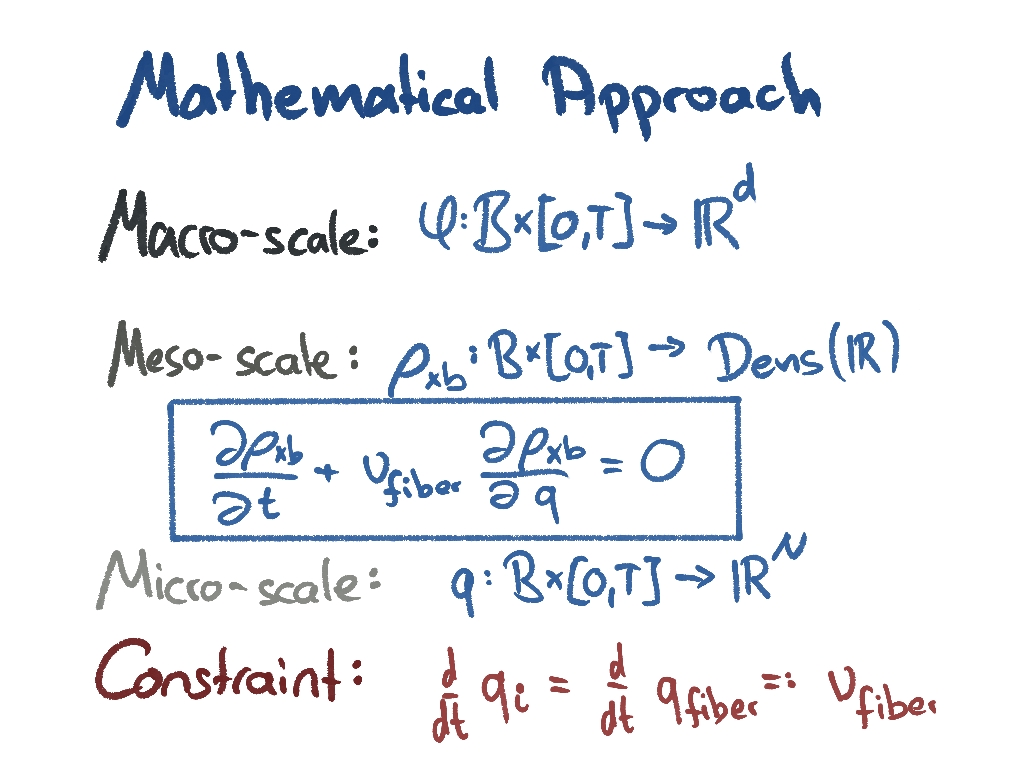 Mathematical Approach
Macro-scale: φ: B×[0,T] → ℝ^d
Meso-scale: ρ_xb: B×[0,T] → Dens(ℝ)
∂ρ_xb/∂t + v_fiber ∂ρ_xb/∂q = 0
Micro-scale: q: B×[0,T] → ℝ^N
Constraint: d/dt q_i = d/dt q_fiber =: v_fiber